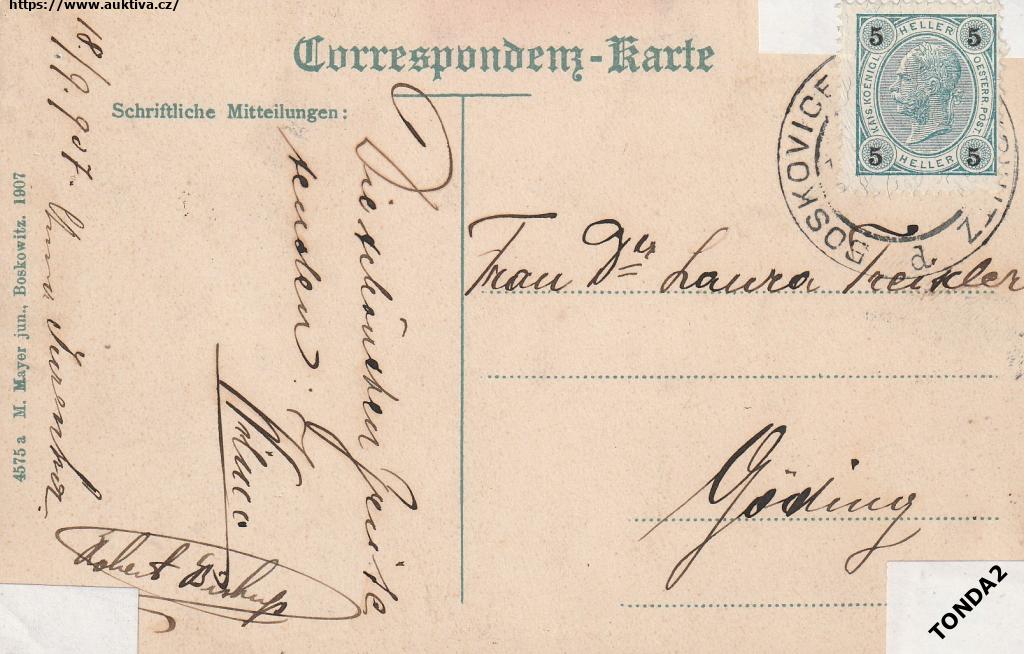 https://www.auktiva.cz/
Correspondenz-Karte
Schriftliche Mitteilungen:
18./9. 907.
Die schönsten Grüsse
senden
Robert Bishup
Frau Dr Laura Treixler
Göding
5 HELLER 5
KAIS. KOENIGL.
OESTERR. POST.
5 HELLER 5
BOSKOVICE
d.
4575 a M. Mayer jun., Boskowitz. 1907
TONDA2